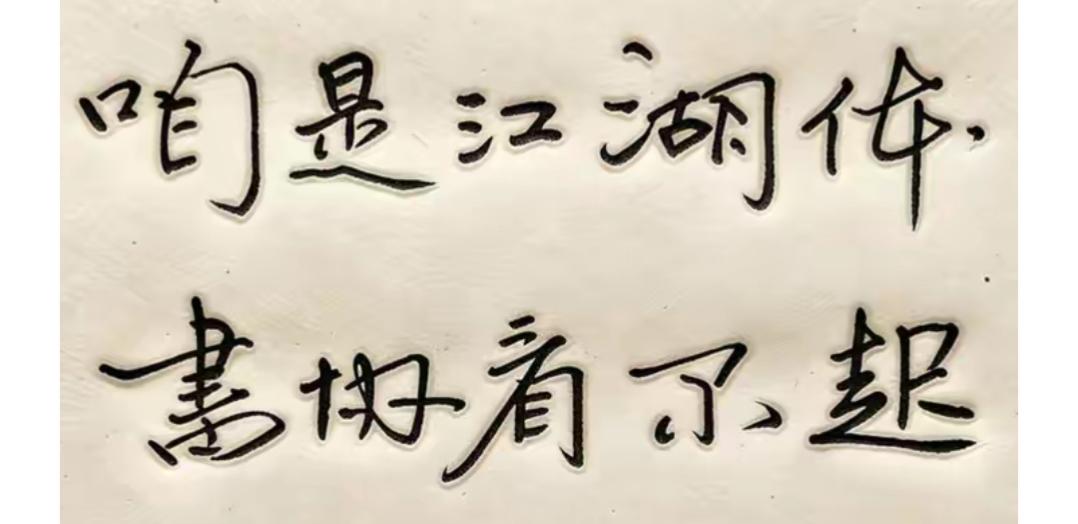 咱是江湖体
書协看不起